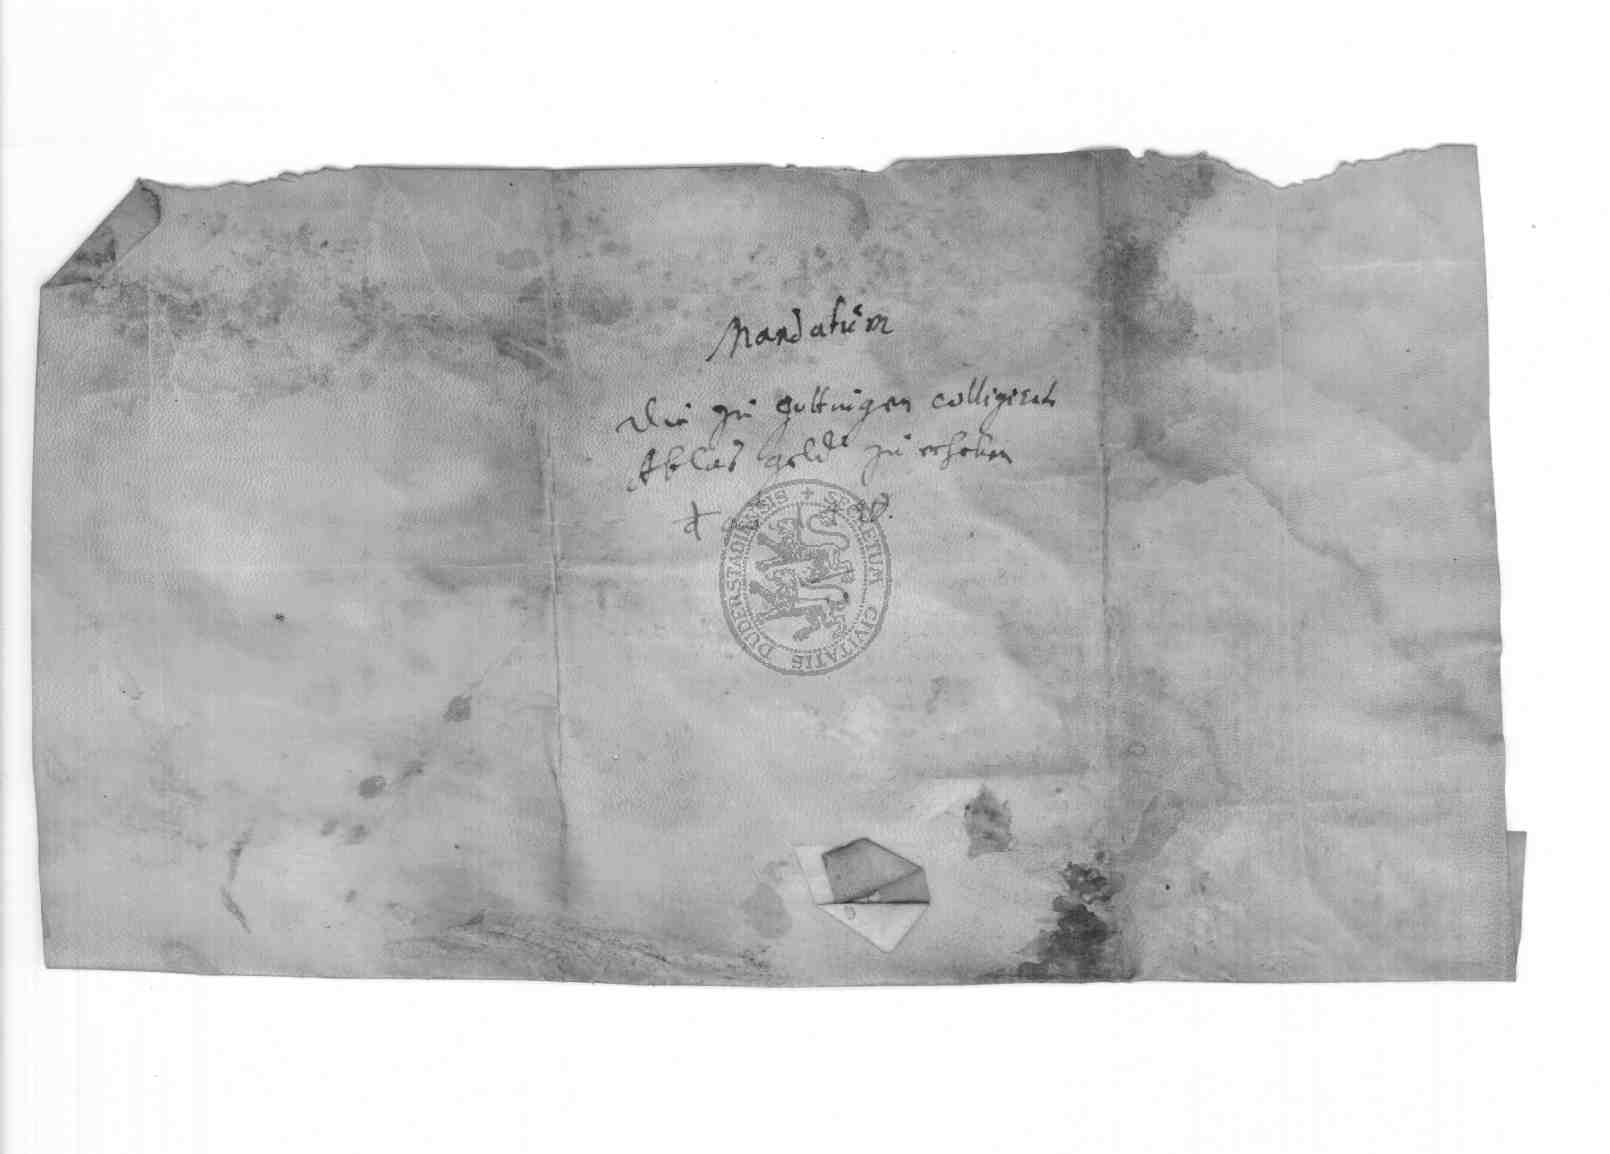 Mandatum
Die zu Gottingen colligierte
Ablas geldt zu erheben
SECRETUM CIVITATIS DUDERSTADIENSIS